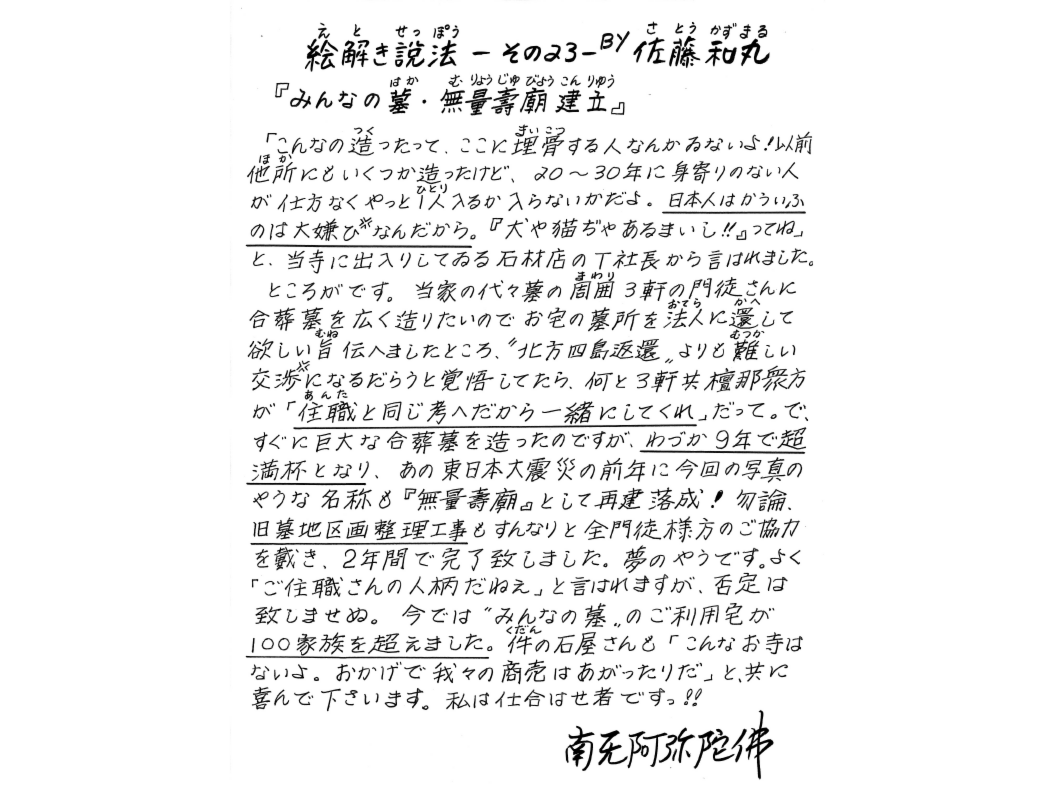 絵解き説法 －その23－ BY 佐藤和丸
『みんなの墓・無量壽廟建立』
「こんなの造ったって、ここに埋骨する人なんかゐないよ！以前
他所にもいくつか造ったけど、20～30年に身寄りのない人
が仕方なくやっと1人入るか入らないかだよ。日本人はかういふ
のは大嫌ひ※なんだから。『犬や猫ぢゃあるまいし!!』ってね」
と、当寺に出入りしてゐる石材店のT社長から言はれました。
ところがです。当家の代々墓の周囲3軒の門徒さんに
合葬墓を広く造りたいのでお宅の墓所を法人に還して
欲しい旨伝へましたところ、〝北方四島返還〟よりも難しい
交渉※になるだらうと覚悟してたら、何と3軒共檀那衆方
が「住職と同じ考へだから一緒にしてくれ」だって。で、
すぐに巨大な合葬墓を造ったのですが、わづか9年で超
満杯となり、あの東日本大震災の前年に今回の写真の
やうな名称も『無量壽廟』として再建落成！勿論、
旧墓地区画整理工事もすんなりと全門徒様方のご協力
を戴き、2年間で完了致しました。夢のやうです。よく
「ご住職さんの人柄だねえ」と言はれますが、否定は
致しませぬ。今では〝みんなの墓〟のご利用宅が
100家族を超えました。件の石屋さんも「こんなお寺は
ないよ。おかげで我々の商売はあがったりだ」と、共に
喜んで下さいます。私は仕合はせ者ですっ!!
南无阿弥陀佛